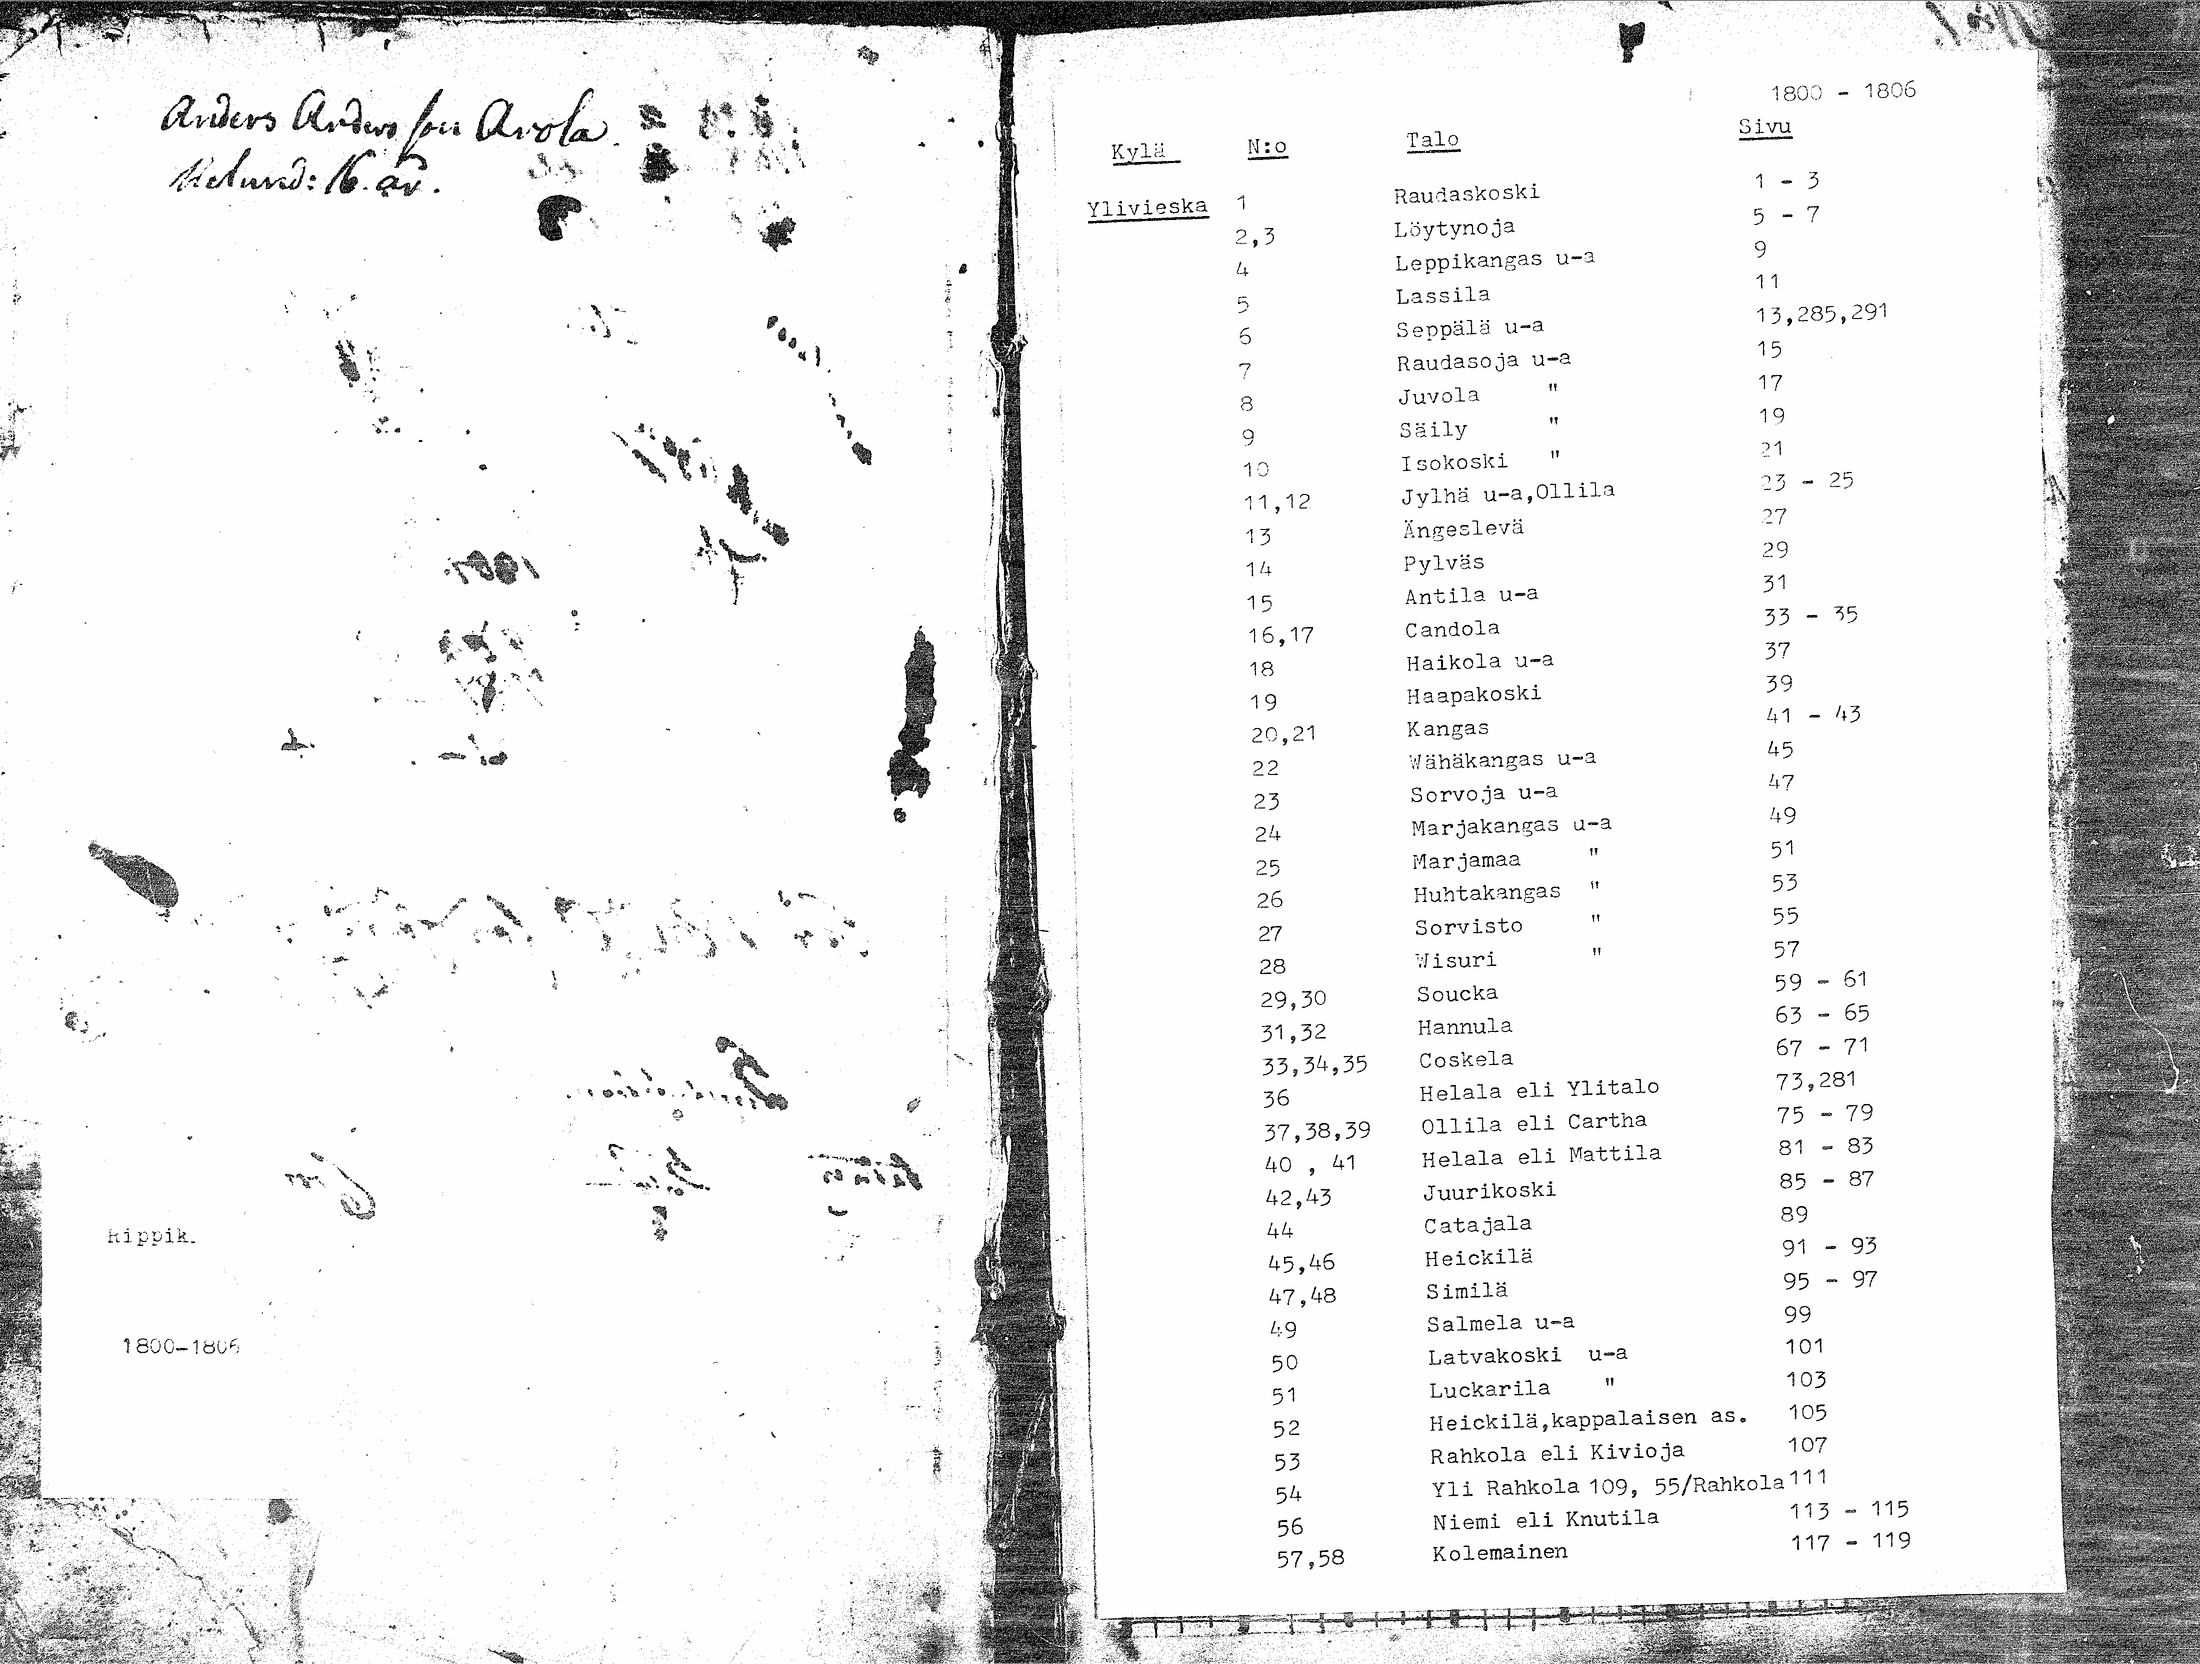 Anders Andersson Arola
16. år.
Rippik.
1800-1806
1800 - 1806
Kylä N:o Talo Sivu
Ylivieska 1 Raudaskoski 1 - 3
2,3 Löytynoja 5 - 7
4 Leppikangas u-a 9
5 Lassila 11
6 Seppälä u-a 13,285,291
7 Raudasoja u-a 15
8 Juvola " 17
9 Säily " 19
10 Isokoski " 21
11,12 Jylhä u-a,Ollila 23 - 25
13 Ängeslevä 27
14 Pylväs 29
15 Antila u-a 31
16,17 Candola 33 - 35
18 Haikola u-a 37
19 Haapakoski 39
20,21 Kangas 41 - 43
22 Wähäkangas u-a 45
23 Sorvoja u-a 47
24 Marjakangas u-a 49
25 Marjamaa " 51
26 Huhtakangas " 53
27 Sorvisto " 55
28 Wisuri " 57
29,30 Soucka 59 - 61
31,32 Hannula 63 - 65
33,34,35 Coskela 67 - 71
36 Helala eli Ylitalo 73,281
37,38,39 Ollila eli Cartha 75 - 79
40 , 41 Helala eli Mattila 81 - 83
42,43 Juurikoski 85 - 87
44 Catajala 89
45,46 Heickilä 91 - 93
47,48 Similä 95 - 97
49 Salmela u-a 99
50 Latvakoski u-a 101
51 Luckarila " 103
52 Heickilä,kappalaisen as. 105
53 Rahkola eli Kivioja 107
54 Yli Rahkola 109, 55/Rahkola 111
56 Niemi eli Knutila 113 - 115
57,58 Kolemainen 117 - 119